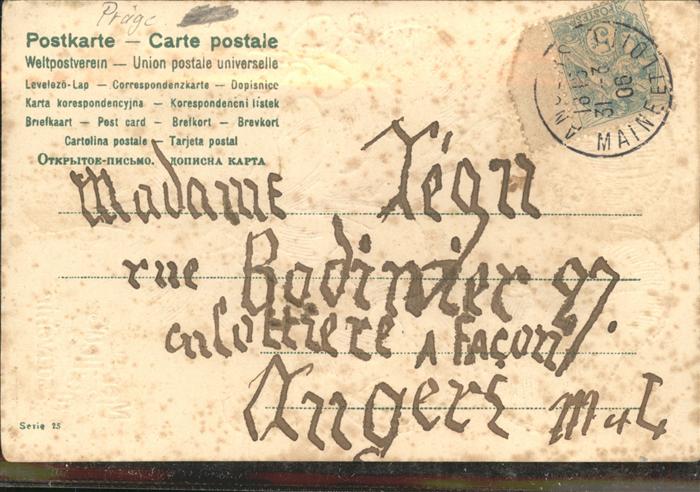 Präge
Postkarte — Carte postale
Weltpostverein — Union postale universelle
Levelező-Lap — Correspondenzkarte — Dopisnice
Karta korespondencyjna — Korespondenčni listek
Briefkaart — Post card — Brefkort — Brevkort
Cartolina postale — Tarjeta postal
Открытое-письмо. дописна карта
Madame
rue Bodinier 27.
culottière A Façon
Angers M et L
Serie 25
31 - 3
06
MAINE ET LOIRE